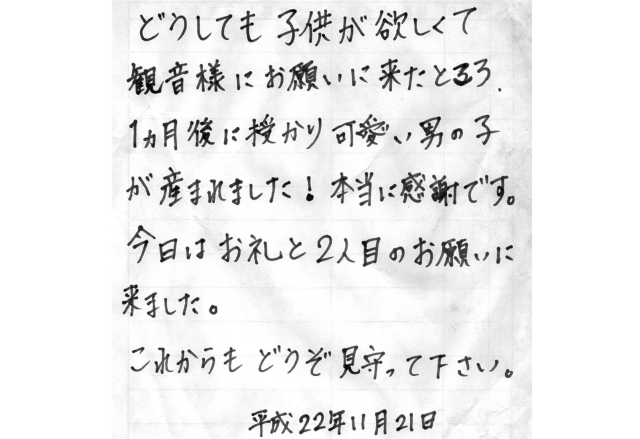 どうしても子供が欲しくて
観音様にお願いに来たところ、
1ヵ月後に授かり可愛い男の子
が産まれました！本当に感謝です。
今日はお礼と2人目のお願いに
来ました。
これからもどうぞ見守って下さい。
平成22年11月21日